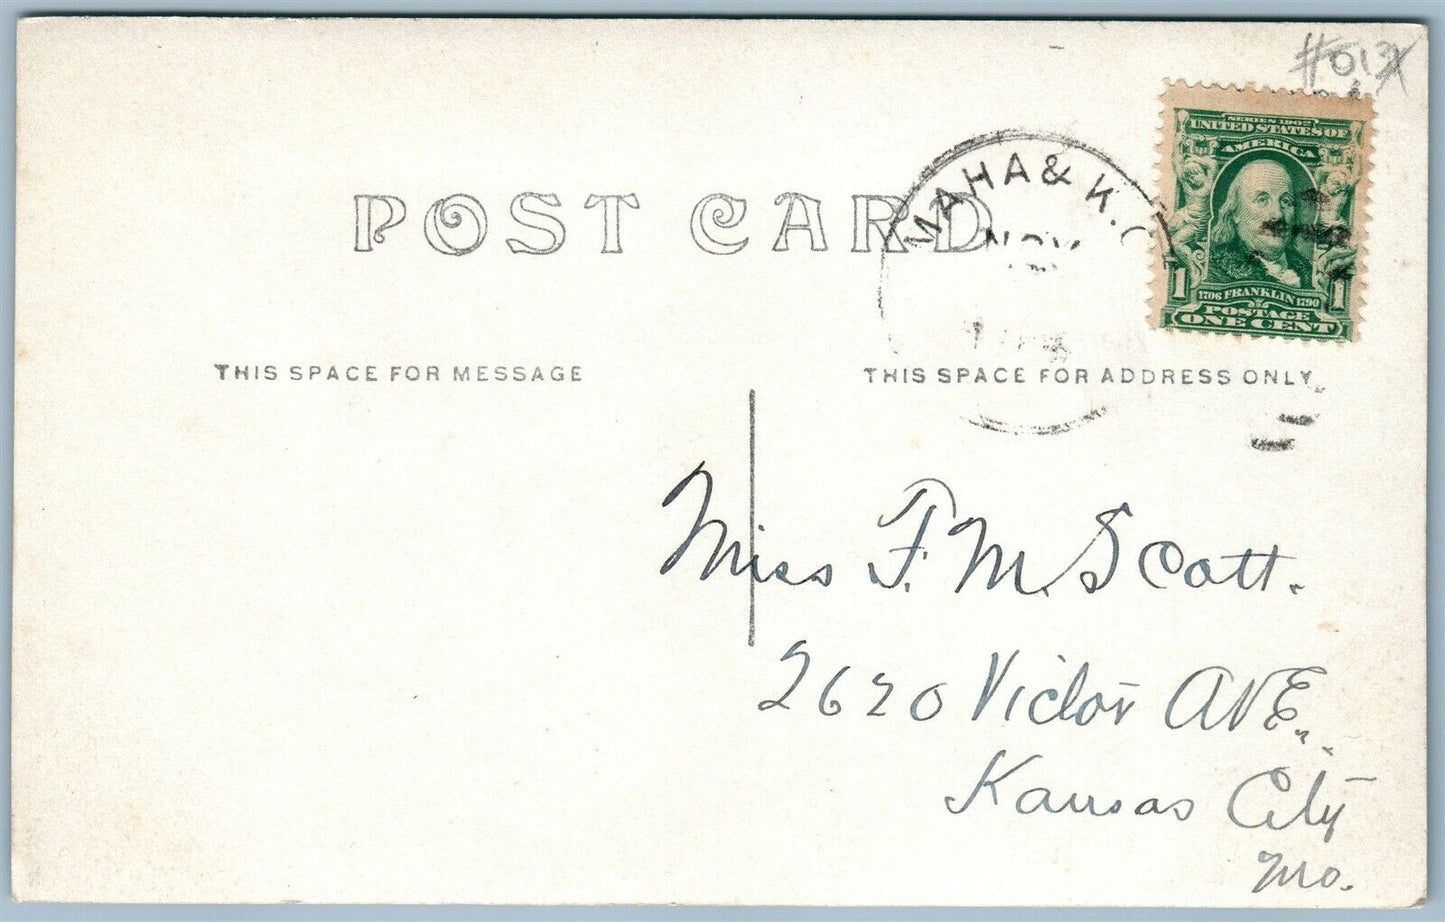 #013X
SERIES 1902
UNITED STATES OF
AMERICA
1706 FRANKLIN 1790
1 POSTAGE 1
ONE CENT
MAHA & K. C
NOV
POST CARD
THIS SPACE FOR MESSAGE
THIS SPACE FOR ADDRESS ONLY
Miss F. M. Scott.
2620 Victor AVE.
Kansas City
Mo.